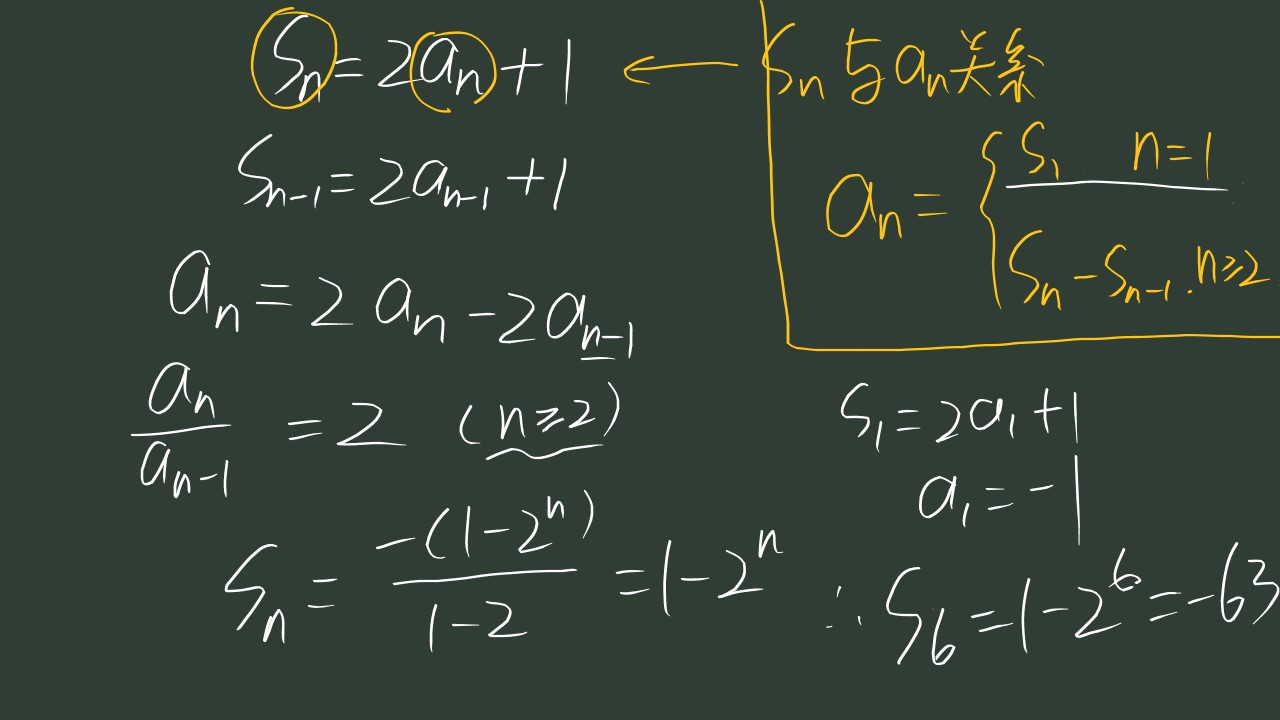 Sₙ = 2aₙ + 1 ← Sₙ 与 aₙ 关系
Sₙ₋₁ = 2aₙ₋₁ + 1
aₙ = { S₁ n = 1
Sₙ - Sₙ₋₁ . n ⩾ 2
aₙ = 2aₙ - 2aₙ₋₁
aₙ / aₙ₋₁ = 2 (n ⩾ 2)
S₁ = 2a₁ + 1
a₁ = -1
Sₙ = -(1 - 2ⁿ) / 1 - 2 = 1 - 2ⁿ
∴ S₆ = 1 - 2⁶ = -63